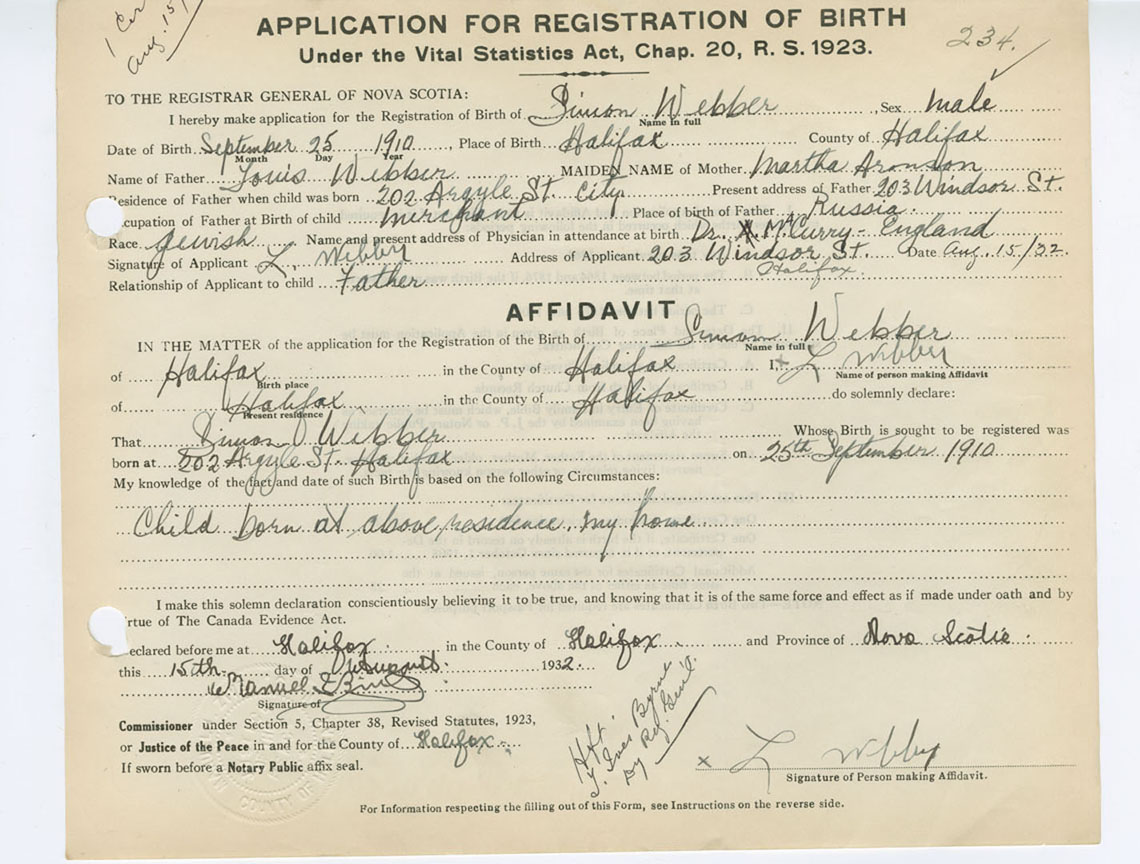 1 Cer
Aug. 15/
APPLICATION FOR REGISTRATION OF BIRTH
Under the Vital Statistics Act, Chap. 20, R. S. 1923.
234.
TO THE REGISTRAR GENERAL OF NOVA SCOTIA:
I hereby make application for the Registration of Birth of Simon Webber, Sex male
Name in full
Date of Birth September 25 1910, Place of Birth Halifax County of Halifax
Month Day Year
Name of Father Louis Webber MAIDEN NAME of Mother Martha Aronson
Residence of Father when child was born 202 Argyle St. City Present address of Father 203 Windsor St.
ccupation of Father at Birth of child merchant Place of birth of Father Russia
Race Jewish Name and present address of Physician in attendance at birth Dr. A. McCurry - England
Signature of Applicant L. Wibby Address of Applicant 203 Windsor St. Date Aug. 15/32.
Halifax.
Relationship of Applicant to child Father
AFFIDAVIT
IN THE MATTER of the application for the Registration of the Birth of Simon Webber
Name in full
of Halifax in the County of Halifax I, x L Wibby
Birth place Name of person making Affidavit
of Halifax in the County of Halifax do solemnly declare:
Present residence
That Simon Webber Whose Birth is sought to be registered was
born at 202 Argyle St. Halifax on 25th September 1910
My knowledge of the fact and date of such Birth is based on the following Circumstances:
Child born at above residence, my home
I make this solemn declaration conscientiously believing it to be true, and knowing that it is of the same force and effect as if made under oath and by
rtue of The Canada Evidence Act.
eclared before me at Halifax in the County of Halifax and Province of Nova Scotia
this 15th day of August 1932.
Signature of
Commissioner under Section 5, Chapter 38, Revised Statutes, 1923,
or Justice of the Peace in and for the County of Halifax
If sworn before a Notary Public affix seal.
Byrne
Dy Reg. Gen'l
x L Wibby
Signature of Person making Affidavit.
For Information respecting the filling out of this Form, see Instructions on the reverse side.